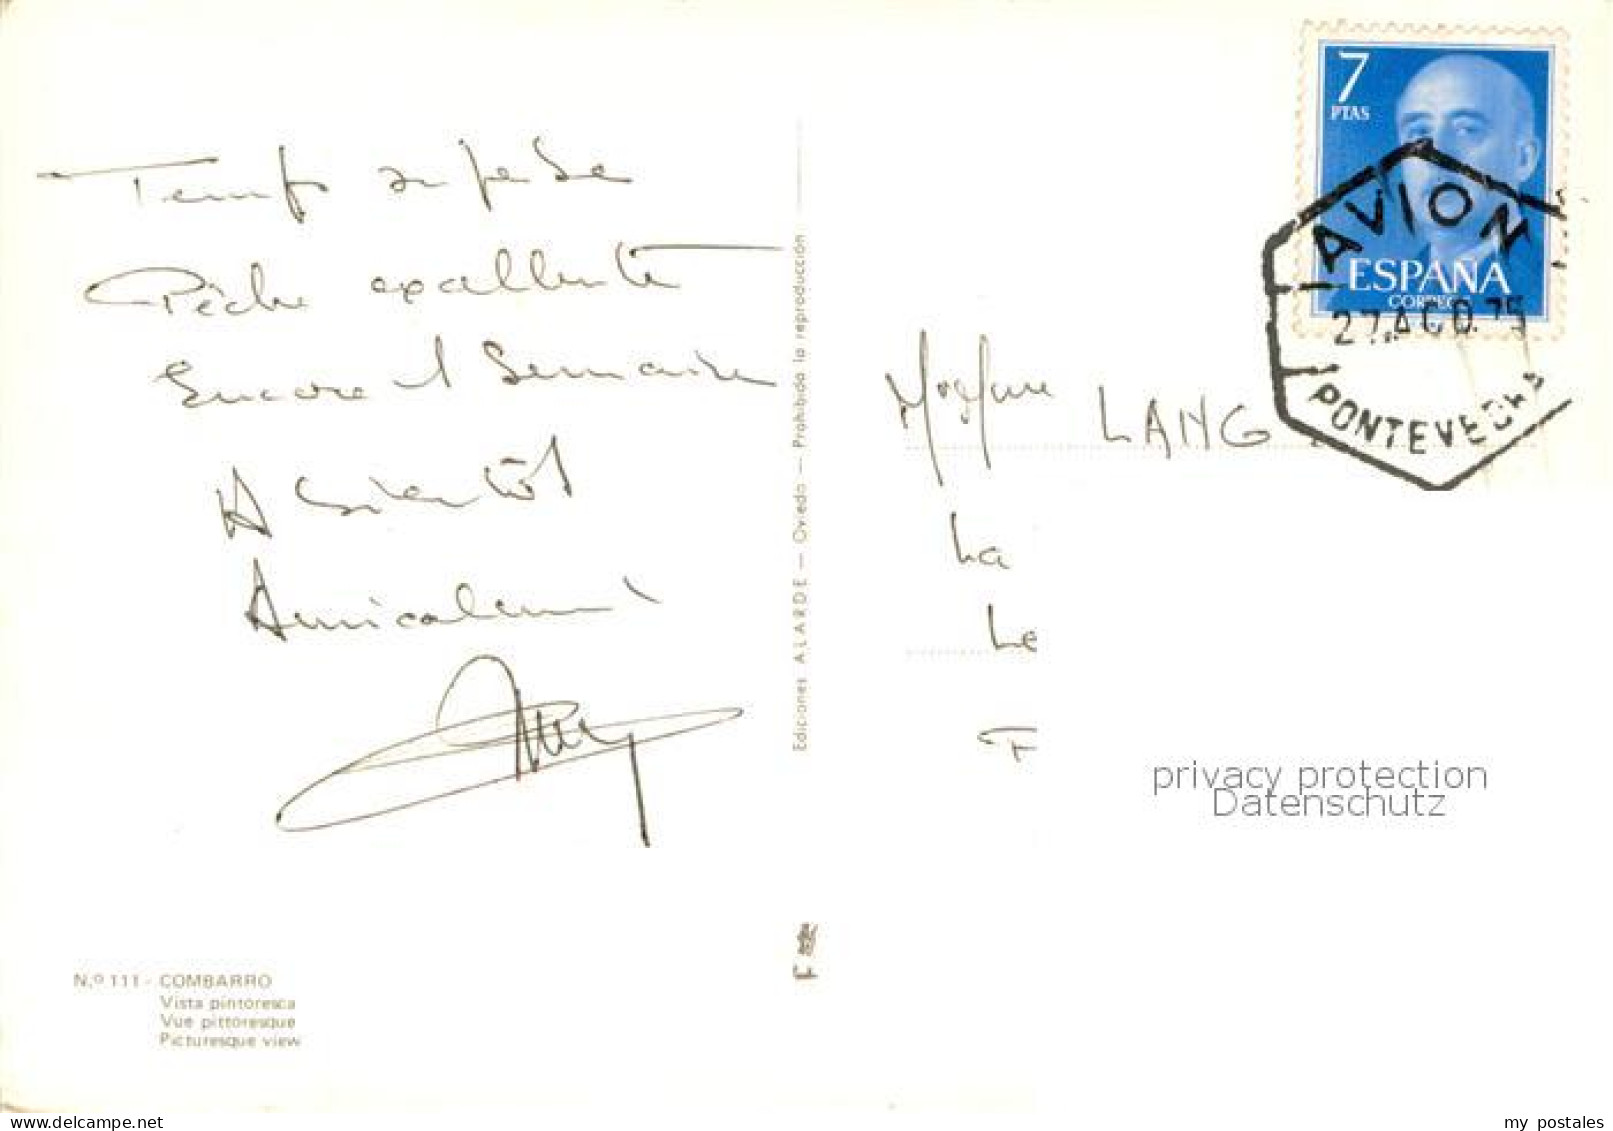 Temps superbe
Pêche excellente
Encore 1 Semaine
A bientôt
Amicalement
Nº 111 - COMBARRO
Vista pintoresca
Vue pittoresque
Picturesque view
Ediciones ALARDE — Oviedo — Prohibida la reproducción
7
PTAS
ESPAÑA
CORREOS
AVION
27 AGO. 75
PONTEVEDRA
LANG
La
Le
privacy protection
Datenschutz
delcampe.net
my postales